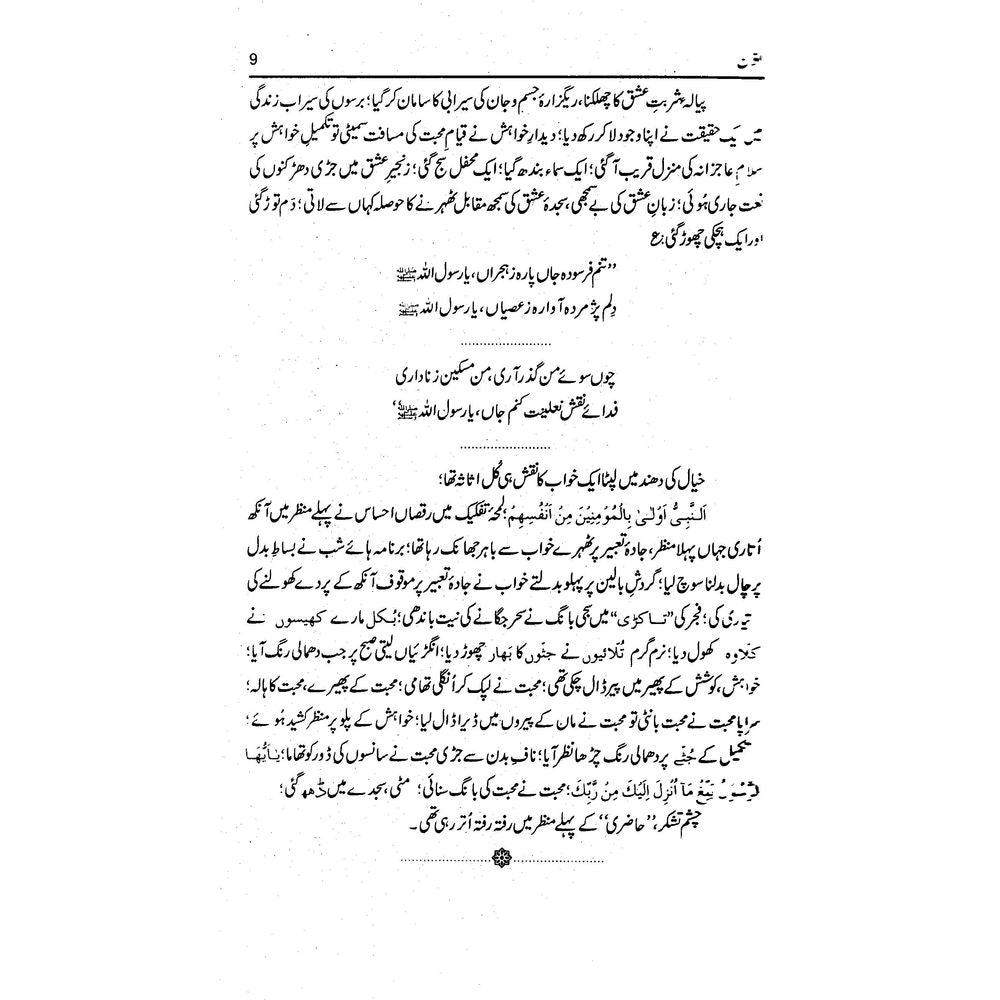 9
پیالۂ شربتِ عشق کا چھلکنا، ریگزارۂ جسم و جان کی سیرابی کا سامان کر گیا؛ برسوں کی سیراب زندگی
میں یک حقیقت نے اپنا وجود لا کر رکھ دیا؛ دیدارِ خواہش نے قیامِ محبت کی مسافت سمیٹی تو تکمیلِ خواہش پر
سلامِ عاجزانہ کی منزل قریب آ گئی؛ ایک سماء بندھ گیا؛ ایک محفل سج گئی؛ زنجیرِ عشق میں جڑی دھڑکنوں کی
نعت جاری ہوئی؛ زبانِ عشق کی بے سمجھی، سجدۂ عشق کی سمجھ مقابل ٹھہرنے کا حوصلہ کہاں سے لاتی؛ دَم توڑ گئی
اور ایک ہچکی چھوڑ گئی: ع
’’تنم فرسودہ جاں پارہ ز ہجراں، یا رسول اللہ ﷺ
دِلم پژمردہ آوارہ ز عصیاں، یا رسول اللہ ﷺ
چوں سوئے من گذر آری، من مسکین ز ناداری
فدائے نقش نعلیت کنم جاں، یا رسول اللہ ﷺ‘‘
خیال کی دھند میں لپٹا ایک خواب کا نقش ہی کُل اثاثہ تھا؛
اَلنَّبِیُّ اَوْلٰی بِالْمُؤْمِنِیْنَ مِنْ اَنْفُسِهِمْ؛ لمحۂ تفکیک میں رقصاں احساس نے پہلے منظر میں آنکھ
اُتاری جہاں پہلا منظر، جادۂ تعبیر پر ٹھہرے خواب سے باہر جھانک رہا تھا؛ برنامہ ہائے شب نے بساطِ بدل
پر چال بدلنا سوچ لیا؛ گردشِ بالین پر پہلو بدلتے خواب نے جادۂ تعبیر پر موقوف آنکھ کے پردے کھولنے کی
تیاری کی؛ فجر کی ’’تاکڑی‘‘ میں سجی بانگ نے سحر جگانے کی نیت باندھی؛ بُکل مارے کھیسوں نے
کلاوہ کھول دیا؛ نرم گرم تُلائیوں نے جثّوں کا بھار چھوڑ دیا؛ انگڑائیاں لیتی صبح پر جب دھمالی رنگ آیا؛
خواہش، کوشش کے پھیر میں پیر ڈال چکی تھی؛ محبت نے لپک کر اُنگلی تھامی؛ محبت کے پھیرے، محبت کا ہالہ؛
سراپا محبت نے محبت بانٹی تو محبت نے مان کے پیروں میں ڈیرا ڈال لیا؛ خواہش کے پلو پر منظر کشید ہوئے؛
تکمیل کے جُثّے پر دھمالی رنگ چڑھا نظر آیا؛ نافِ بدن سے جڑی محبت نے سانسوں کی ڈور کو تھاما؛ یٰاَیُّهَا
مَآ اُنْزِلَ اِلَیْكَ مِنْ رَّبِّكَ؛ محبت نے محبت کی بانگ سنائی؛ مٹی، سجدے میں ڈھ گئی؛
چشمِ تشکر، ’’حاضری‘‘ کے پہلے منظر میں رفتہ رفتہ اُتر رہی تھی۔